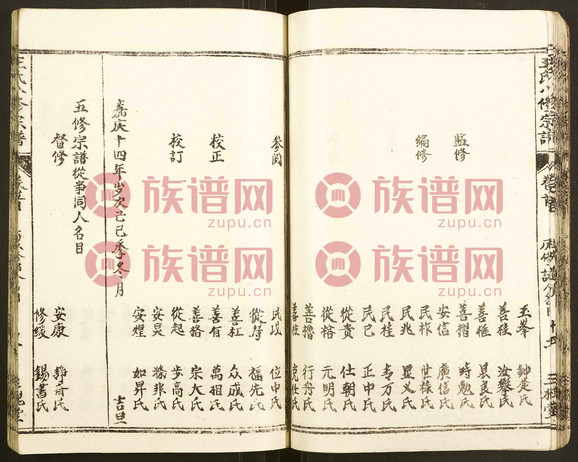 王氏八修宗譜
卷首
三槐堂
監修
玉峯 鄉廷氏
善後
善種 良氏
編修
善摺 時勉氏
安信 廣信氏
民祚 世祿氏
民兆 显义氏
民桂 方万氏
民已 正中氏
從貴 仕朝氏
從榕 元明氏
善摺 行舟氏
參閱
民岐 位中氏
從壽 福先氏
善紅 众成氏
校正
善有 萬相氏
善格 宗大氏
校訂
從起 步高氏
安炅 非氏
安煌 如昇氏
嘉庆十四年岁次己巳季冬月 吉旦
五修宗譜從事同人名目
督修
安康 府氏
修綾 錫書氏
王氏八修宗譜
卷首
族谱网
zupu.cn
族谱网
zupu.cn
族谱网
zupu.cn
族谱网
zupu.cn